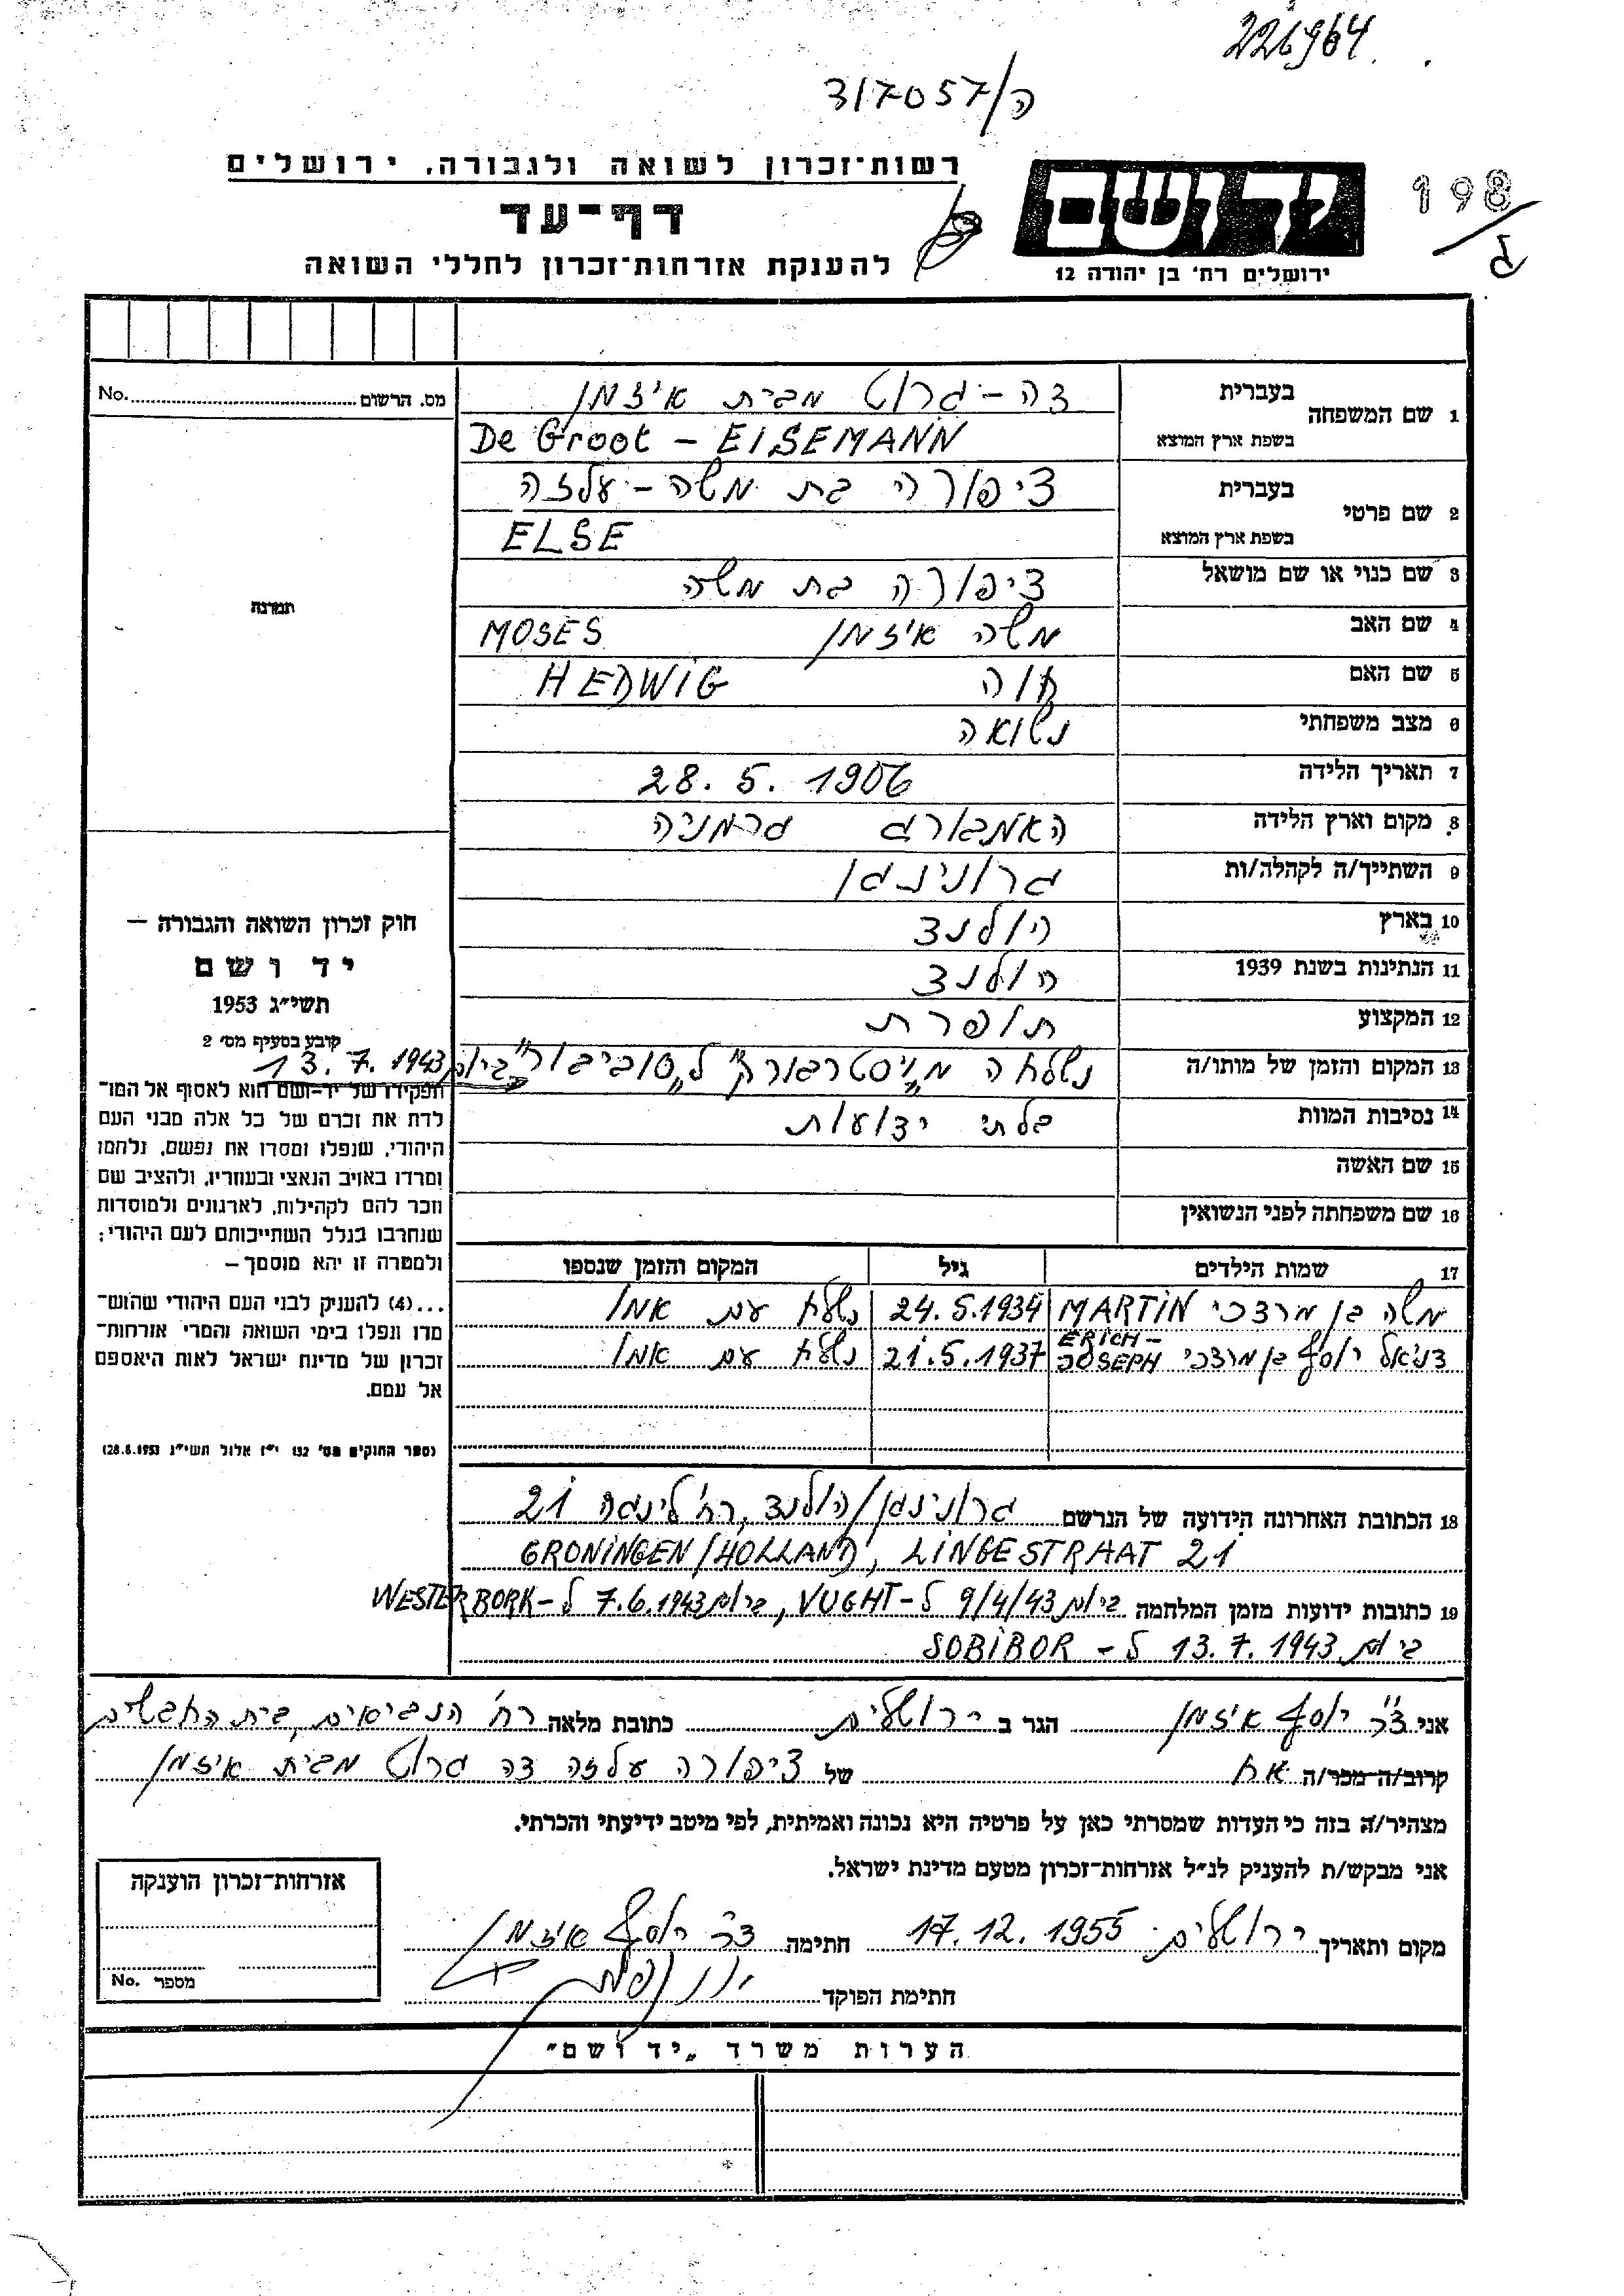 226964
ה/317057
רשות־זכרון לשואה ולגבורה, ירושלים
דף־עד
להענקת אזרחות־זכרון לחללי השואה
יד ושם
ירושלים רח' בן יהודה 12
198
מס. הרשום No.
תמונה
1 שם המשפחה בעברית דה - גרוט מבית איזמן
בשפת ארץ המוצא De Groot - EISEMANN
2 שם פרטי בעברית ציפורה בת משה - עלזה
בשפת ארץ המוצא ELSE
3 שם כנוי או שם מושאל ציפורה בת משה
4 שם האב משה איזמן MOSES
5 שם האם חוה HEDWIG
6 מצב משפחתי נשואה
7 תאריך הלידה 28. 5. 1906
8 מקום וארץ הלידה האמבורג גרמניה
9 השתייך/ה לקהלה/ות גרונינגן
10 בארץ הולנד
11 הנתינות בשנת 1939 הולנד
12 המקצוע תופרת
13 המקום והזמן של מותו/ה נשלחה מ"וסטרבורק" ל"סוביבור" ביום 13. 7. 1943
14 נסיבות המוות בלתי ידועות
15 שם האשה
16 שם משפחתה לפני הנשואין
17 שמות הילדים גיל המקום והזמן שנספו
משה בן מרדכי MARTIN 24.5.1934 נשלח עם אמו
דניאל יוסף בן מרדכי ERICH-JOSEPH 21.5.1937 נשלח עם אמו
חוק זכרון השואה והגבורה —
יד ושם
תשי״ג 1953
קובע בסעיף מס׳ 2
תפקידו של יד־ושם הוא לאסוף אל המו־
לדת את זכרם של כל אלה מבני העם
היהודי, שנפלו ומסרו את נפשם, נלחמו
ומרדו באויב הנאצי ובעוזריו, ולהציב שם
וזכר להם לקהילות, לארגונים ולמוסדות
שנחרבו בגלל השתייכותם לעם היהודי;
ולמטרה זו יהא מוסמך —
...(4) להעניק לבני העם היהודי שהוש־
מדו ונפלו בימי השואה והמרי אזרחות־
זכרון של מדינת ישראל לאות היאספם
אל עמם.
(ספר החוקים מס׳ 132 י״ז אלול תשי״ג 28.8.1953)
18 הכתובת האחרונה הידועה של הנרשם גרונינגן/הולנד, רח' לינגה 21
GRONINGEN/HOLLAND, LINGESTRAAT 21
19 כתובות ידועות מזמן המלחמה ביום 9/4/43 ל-VUGHT, ביום 7.6.1943 ל-WESTERBORK
ביום 13.7.1943 ל-SOBIBOR
אני ד"ר יוסף איזמן הגר ב ירושלים כתובת מלאה רח' הנביאים, בית החבשים
קרוב/ה מכר/ה אח של ציפורה עלזה דה גרוט מבית איזמן
מצהיר/ה בזה כי העדות שמסרתי כאן על פרטיה היא נכונה ואמיתית, לפי מיטב ידיעתי והכרתי.
אני מבקש/ת להעניק לנ״ל אזרחות־זכרון מטעם מדינת ישראל.
מקום ותאריך ירושלים 17.12.1955 חתימה ד"ר יוסף איזמן
חתימת הפוקד
אזרחות־זכרון הוענקה
מספר No.
הערות משרד „יד ושם"